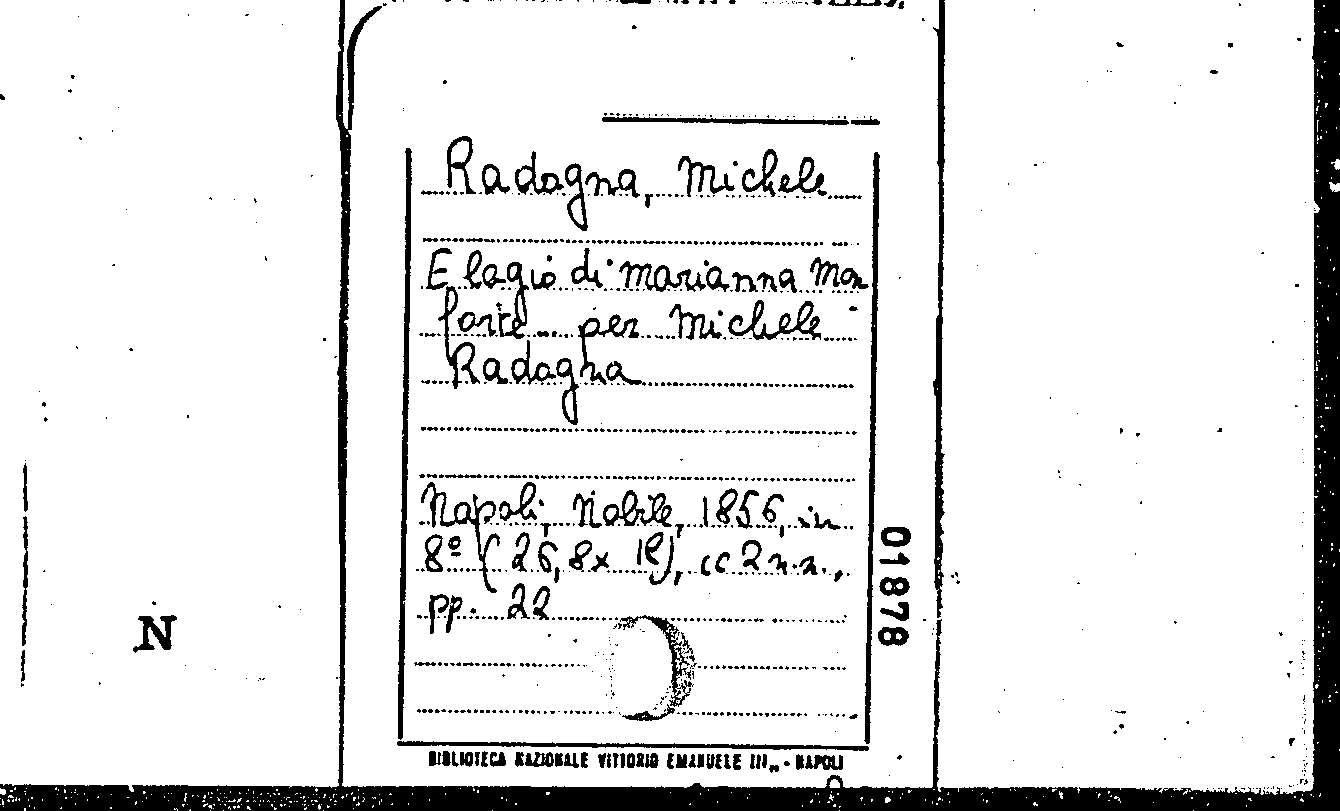 Radogna, Michele
Elogio di Marianna Mon
forte... per Michele
Radogna
Napoli, Nobile, 1856, in
8º (26,8x 18), cc 2 n.n.,
pp. 22
01878
N
BIBLIOTECA NAZIONALE VITTORIO EMANUELE III„ - NAPOLI